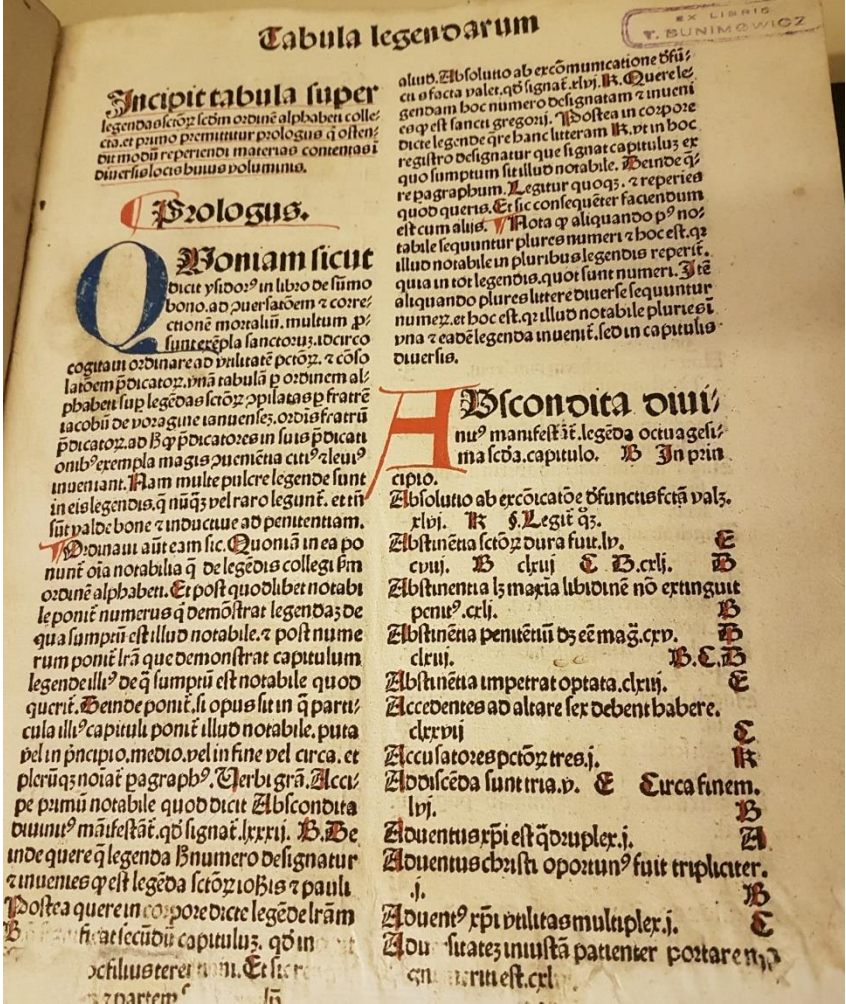 Tabula legendarum
EX LIBRIS
T. BUNIMOWICZ
Incipit tabula super
legendas sctōꝝ scdm ordinē alphabeti colle-
cta. et primo premittitur prologus q̄ osten-
dit modū reperiendi materias contentas ī
diuersis locis huius voluminis.
¶ Prologus.
QVoniam sicut
dicit ysidorꝰ in libro de sūmo
bono. ad ꝯuersatōem ⁊ corre-
ctionē mortaliū. multum ꝓ-
sunt exēpla sanctoruꝫ. idcirco
cogitaui ordinare ad vtilitatē pctōꝝ. ⁊ cōso
latōem p̄dicatoꝝ. vnā tabulā ꝑ ordinem al-
phabeti suꝑ legēdas sctōꝝ ꝯpilatas ꝑ fratrē
iacobū de voragine ianuensez. ordīs fratrū
p̄dicatoꝝ. ad h̄ ꝙ p̄dicatores in suis p̄dicati
onibꝰ exempla magis ꝯueniētia citiꝰ ⁊ leuiꝰ
inueniant. Nam multe pulcre legende sunt
in eis legendis. q̄ nūq̄ꝫ vel raro legunt̄. et tn̄
sūt valde bone ⁊ inductiue ad penitentiam.
¶ Ordinaui aūt eam sic. Quoniā in ea po
nunt̄ oīa notabilia q̄ de legēdis collegi ẜm
ordinē alphabeti. Et post quodlibet notabi
le ponit̄ numerus q̄ demōstrat legendaꝫ de
qua sumptū est illud notabile. ⁊ post nume
rum ponit̄ lrā que demonstrat capitulum
legende illiꝰ de q̄ sumptū est notabile quod
querit̄. Deinde ponit̄. si opus sit in q̄ parti-
cula illiꝰ capituli ponit̄ illud notabile. puta
vel in p̄ncipio. medio. vel in fine vel circa. et
plerūqꝫ noīat̄ ꝑagraphꝰ. Verbi grā. Acci-
pe primū notabile quod dicit Abscondita
diuinitꝰ māifestāt̄. qd̄ signat̄. lxxxij. B. De
inde quere q̄ legenda h̄ numero designatur
⁊ inuenies ꝙ est legēda sctōꝝ ioh̄is ⁊ pauli
Postea quere in corpore dicte legēde lrām
B ficat secūdū capituluꝫ. qd̄ in
Et sic
⁊ partem
aliud. Absolutio ab excōmunicatione dēfū-
cti s facta valet. qd̄ signat̄. xlvj. K. Quere le-
gendam hoc numero designatam ⁊ inueni
es ꝙ est sancti gregorij. Postea in corpore
dicte legende q̄re hanc litteram K. vt in hoc
registro designatur que signat capituluꝫ ex
quo sumptum sit illud notabile. Deinde q̄-
re ꝑagraphum. Legitur quoqꝫ. ⁊ reperies
quod queris. Et sic consequēter faciendum
est cum alijs. ¶ Nota ꝙ aliquando pꝰ no-
tabile sequuntur plures numeri ⁊ hoc est. qꝛ
illud notabile in pluribus legendis reperit̄.
quia in tot legendis. quot sunt numeri. Itē
aliquando plures littere diuerse sequuntur
numeꝝ. et hoc est. qꝛ illud notabile pluries ī
vna ⁊ eadē legenda inuenit̄. sed in capitulis
diuersis.
ABscondita diui-
nitꝰ manifestāt̄. legēda octuagesi-
ma scd̄a. capitulo. B In prin
cipio.
Absolutio ab excōicatōe d̄functis fctā valꝫ.
xlvj. K §. Legit̄ q̄ꝫ.
Abstinētia sctōꝝ dura fuit. lv. E
cviij. B clxij C D. cxlj. D
Abstinentia lꝫ maxīa libidinē nō extinguit
penitꝰ. cxlj. B
Abstinētia penitētiū dꝫ eē maḡ. cxv. D
clxiij. B. C. D
Abstinētia impetrat optata. clxiij. E
Accedentes ad altare sex debent habere.
clxxvij C
Accusatores pctōꝝ tres. j. K
Addiscēda sunt tria. v. E Circa finem.
lvj. B
Aduentus xp̄i est q̄druplex. j. A
Aduentus christi oportunꝰ fuit tripliciter.
.j. B
Aduentꝰ xp̄i vtilitas multiplex. j. C
Adu sitateꝫ iniustā patienter portare
est. cxl